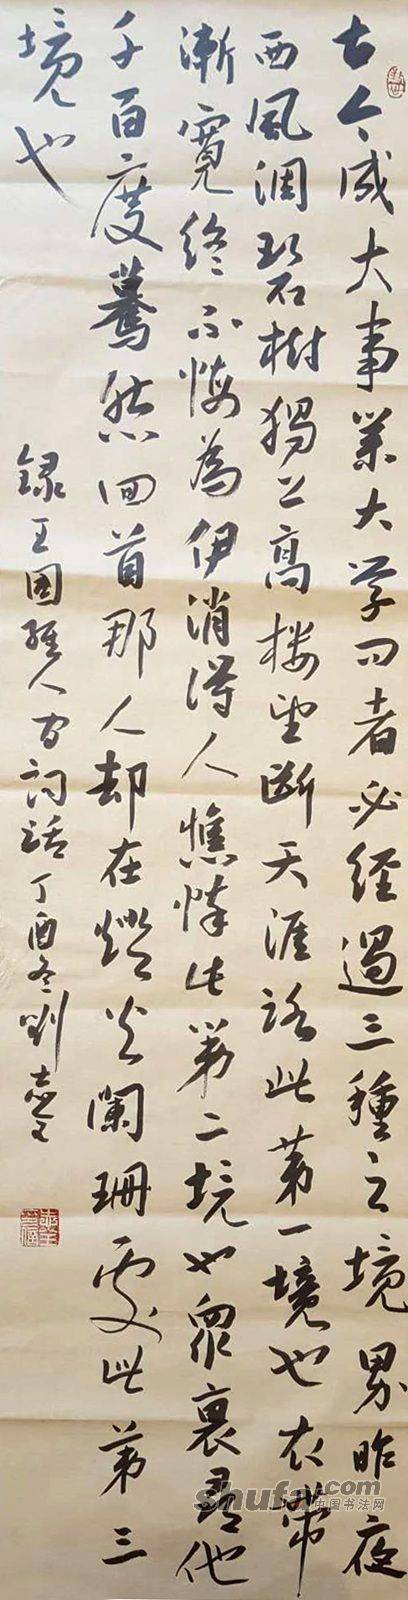 古今成大事業大学问者必经過三種之境界昨夜
西風凋碧樹獨上高楼望断天涯路此第一境也衣带
漸寬终不悔為伊消得人憔悴此第二境也眾裏尋他
千百度驀然回首那人却在燈火闌珊處此第三
境也
録王國維人间词話丁酉冬劉
shufa.com
中国书法网